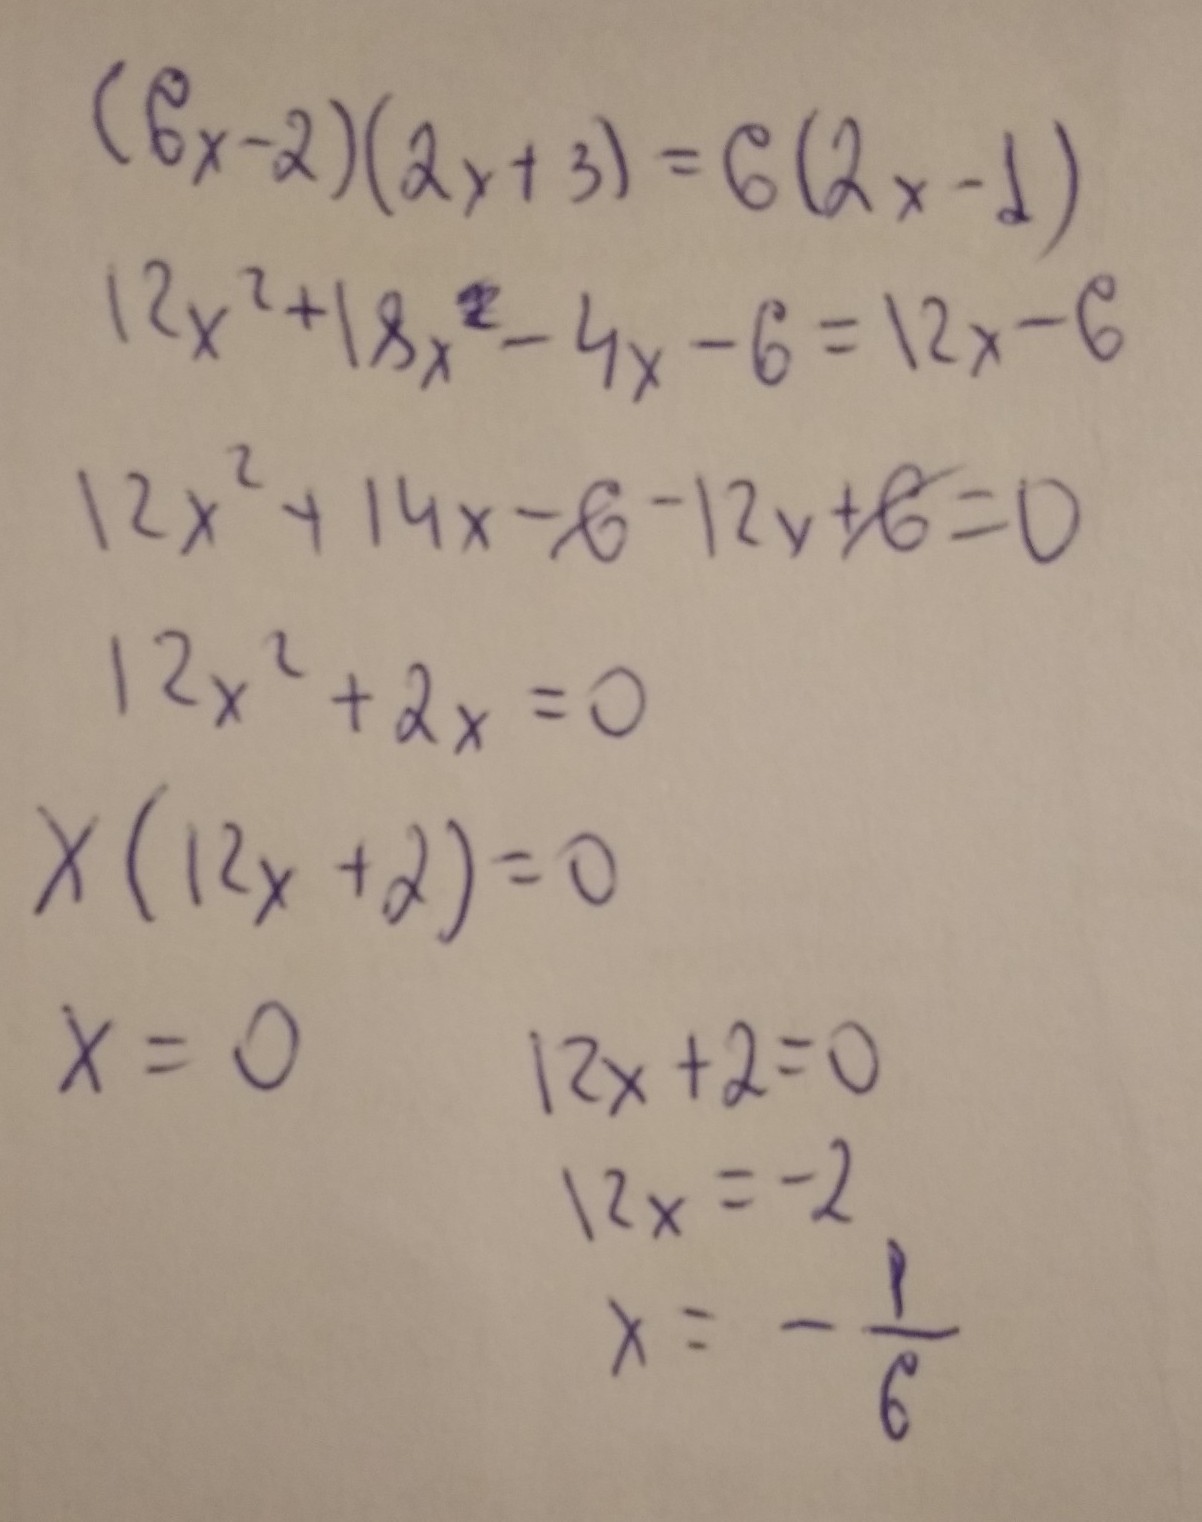 (6x-2)(2x+3)=6(2x-1)
12x²+18x-4x-6=12x-6
12x²+14x-6-12x+6=0
12x²+2x=0
x(12x+2)=0
x=0 12x+2=0
12x=-2
x=-1/6